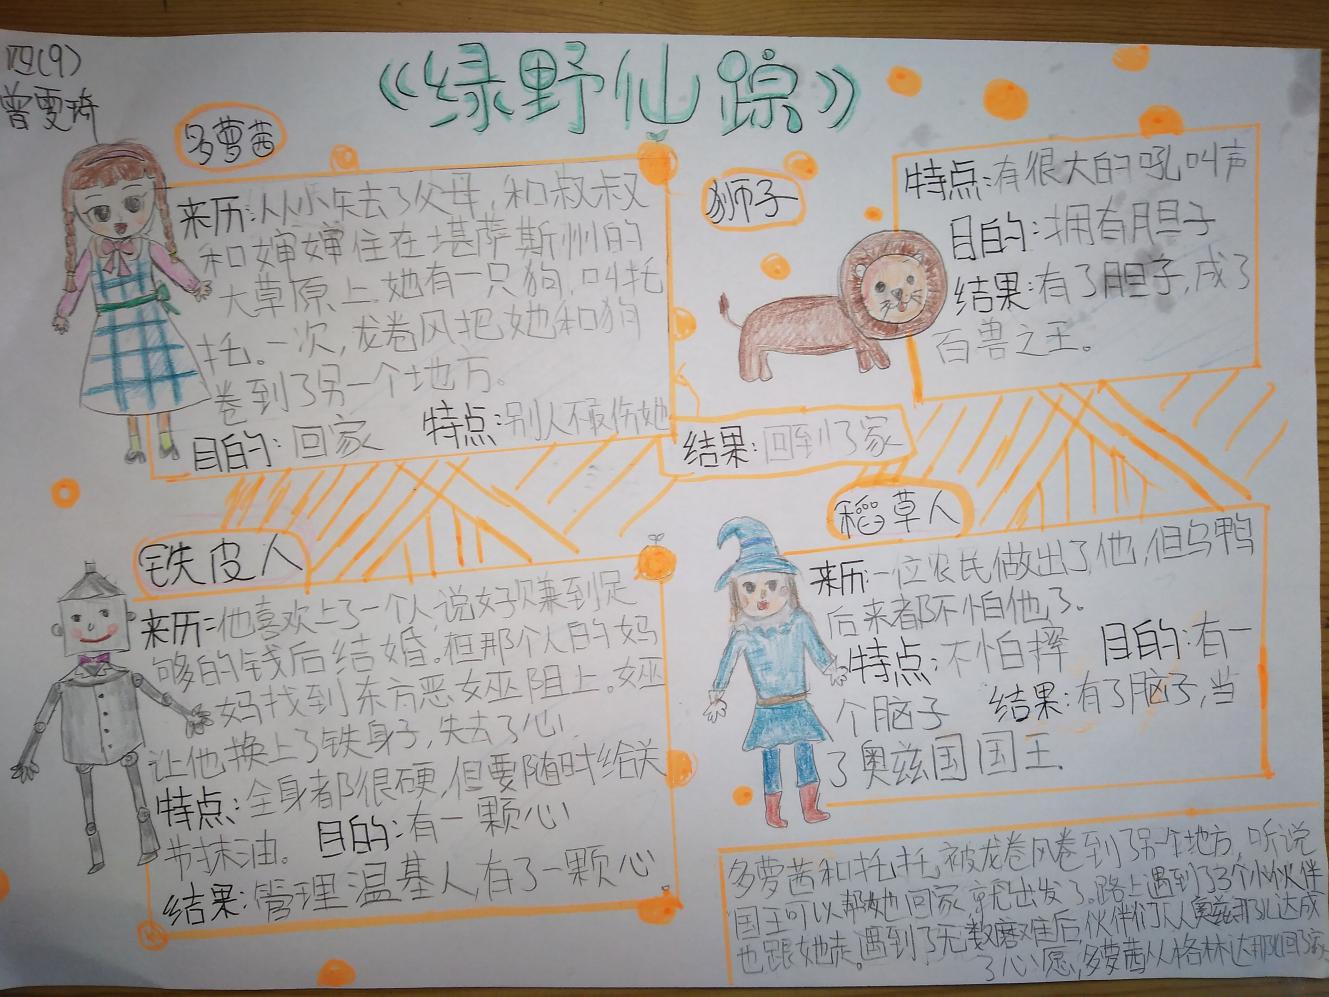 四(9)
曾雯琦
《绿野仙踪》
多萝茜
来历:从小失去了父母,和叔叔
和婶婶住在堪萨斯州的
大草原上.她有一只狗,叫托
托。一次,龙卷风把她和狗
卷到了另一个地方。
目的:回家 特点:别人不敢伤她
结果:回到了家
狮子
特点:有很大的吼叫声
目的:拥有胆子
结果:有了胆子,成了
百兽之王。
铁皮人
来历:他喜欢上了一个人,说好赚到足
够的钱后结婚。但那个人的妈
妈找到东方恶女巫阻止。女巫
让他换上了铁身子,失去了心.
特点:全身都很硬,但要随时给关
节抹油。 目的:有一颗心
结果:管理温基人,有了一颗心
稻草人
来历:一位农民做出了他,但乌鸦
后来都不怕他了。
特点:不怕摔 目的:有一
个脑子 结果:有了脑子,当
了奥兹国国王.
多萝茜和托托,被龙卷风卷到了另一个地方,听说
国王可以帮她回家,就出发了.路上遇到了3个小伙伴
也跟她走。遇到了无数磨难后,伙伴们从奥兹那儿达成
了心愿,多萝茜从格林达那儿回了家